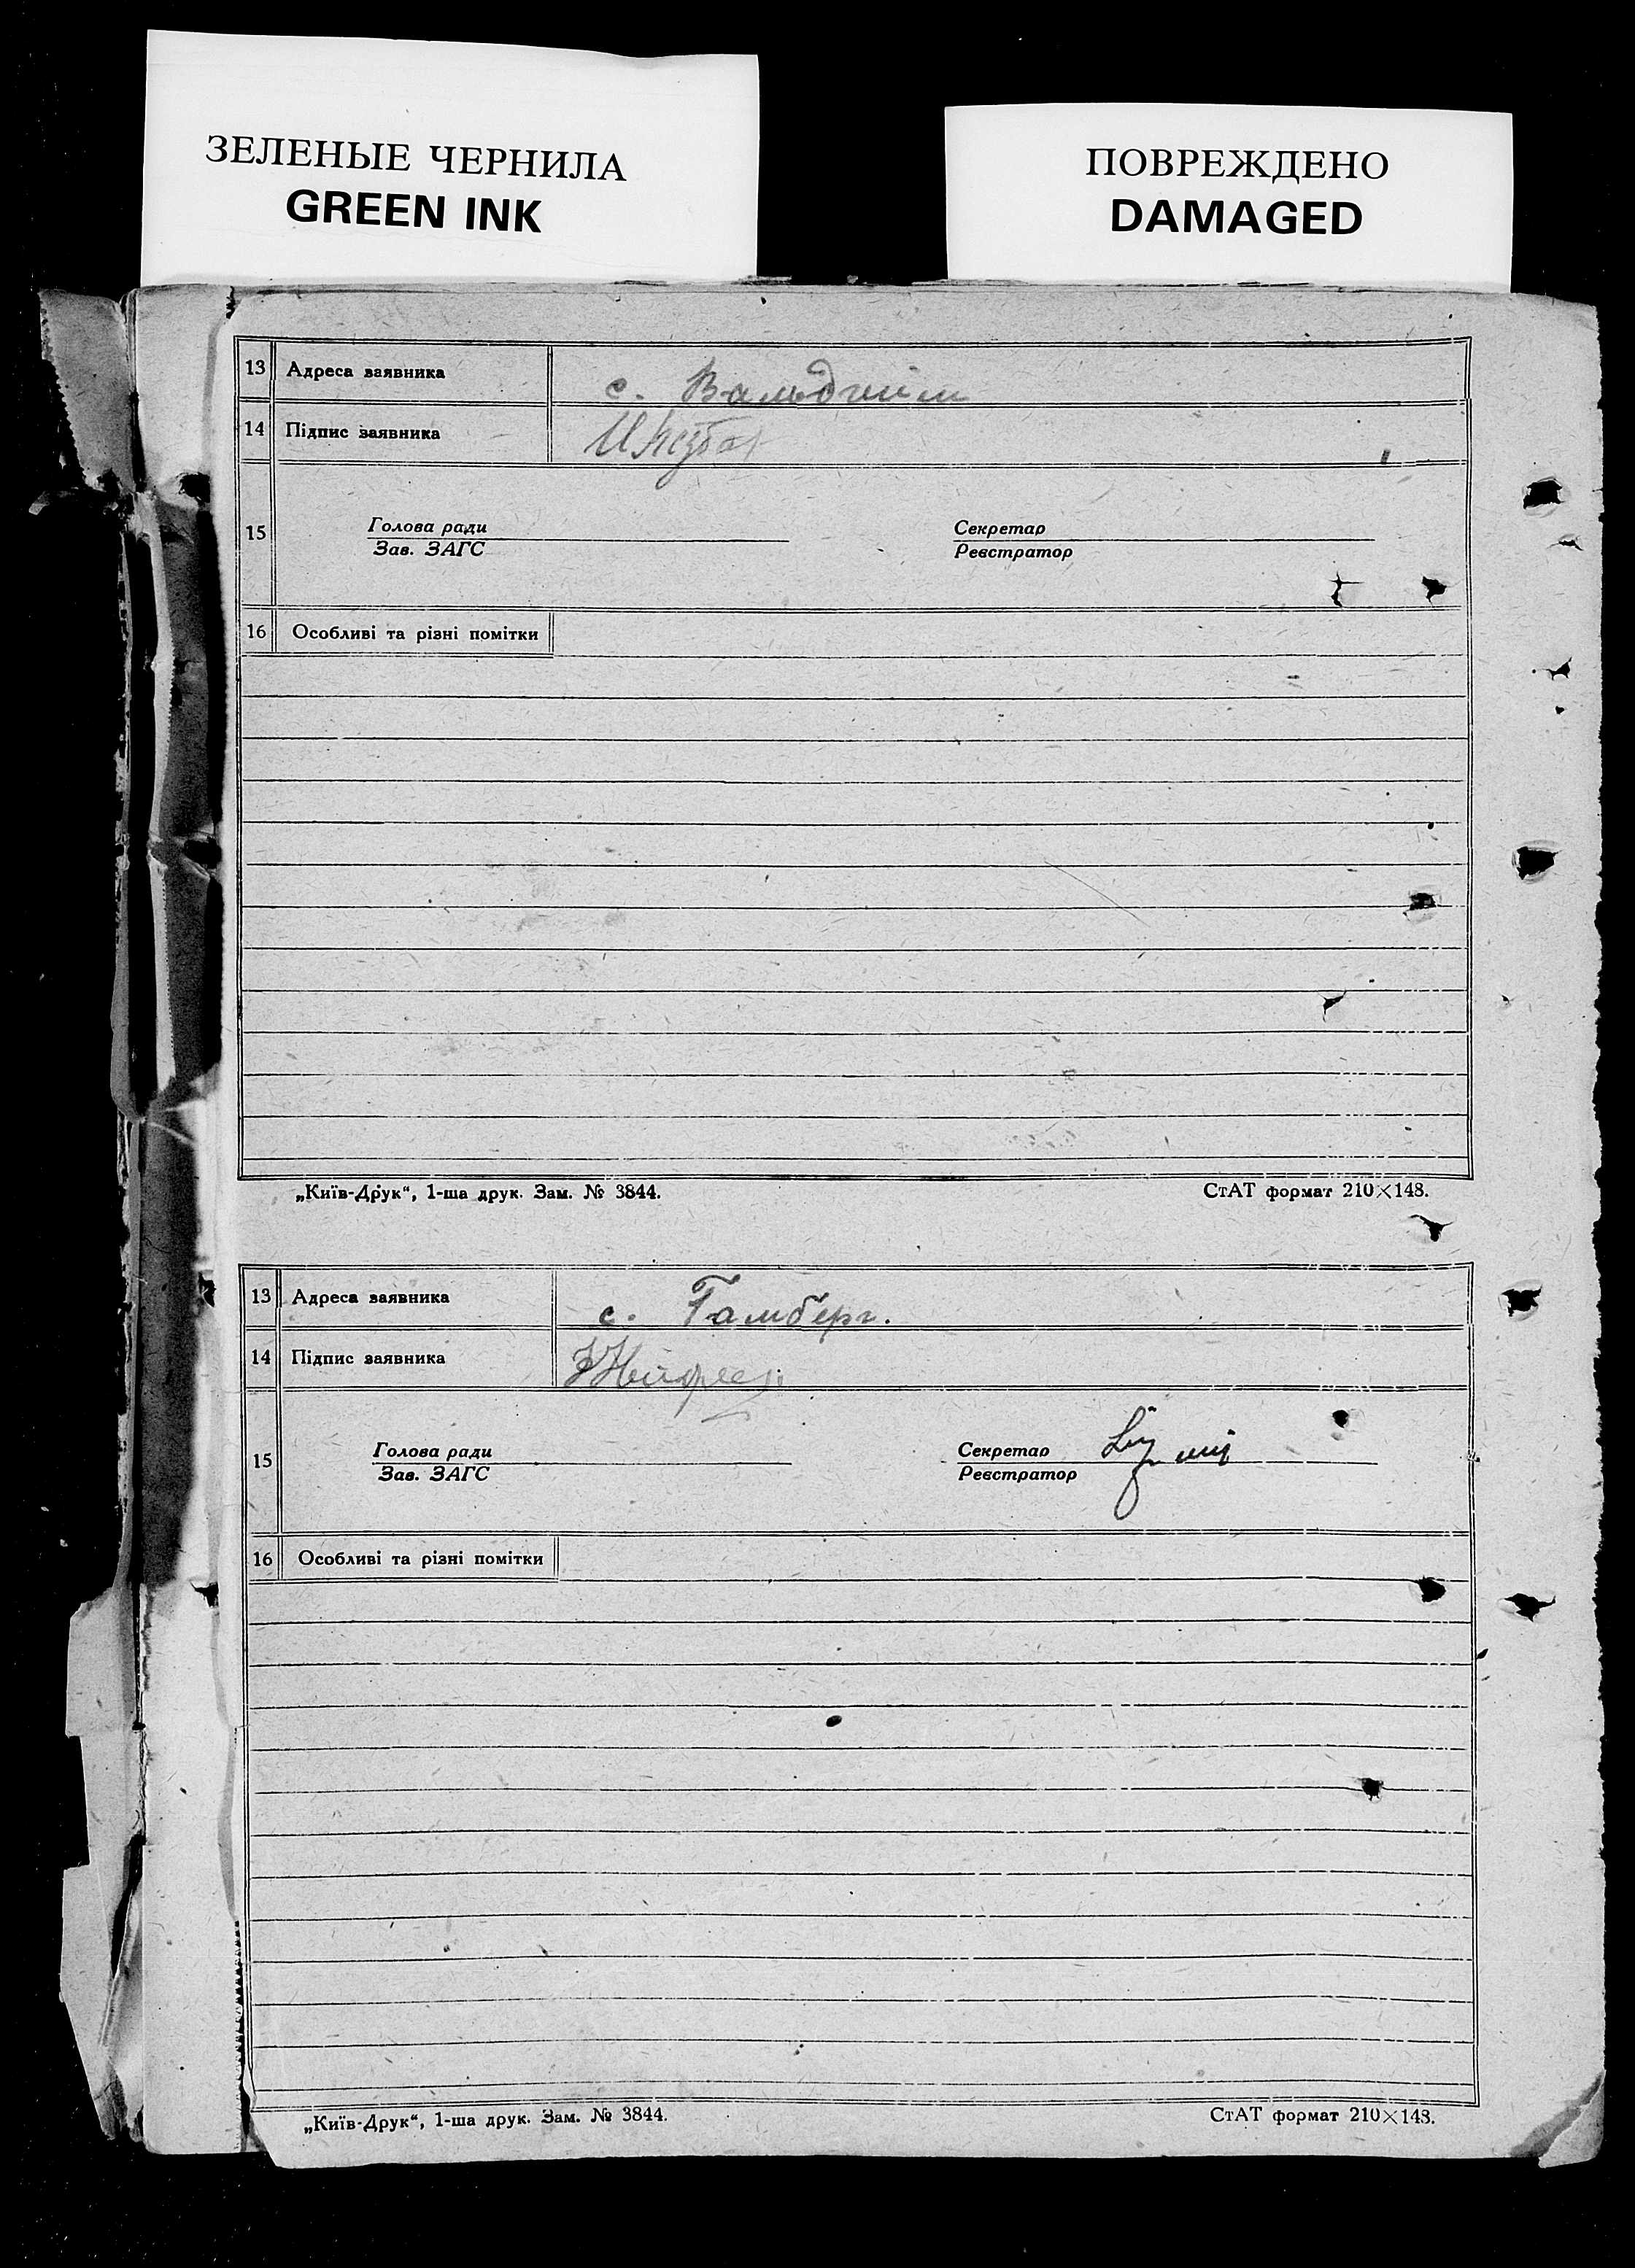 ЗЕЛЕНЫЕ ЧЕРНИЛА
GREEN INK
ПОВРЕЖДЕНО
DAMAGED
13 Адреса заявника с. Вальдгейм
14 Підпис заявника
15 Голова ради Секретар
Зав. ЗАГС Реєстратор
16 Особливі та різні помітки
„Київ-Друк“, 1-ша друк. Зам. № 3844. СтАТ формат 210×148.
13 Адреса заявника с. Гамберг.
14 Підпис заявника
15 Голова ради Секретар
Зав. ЗАГС Реєстратор
16 Особливі та різні помітки
„Київ-Друк“, 1-ша друк. Зам. № 3844. СтАТ формат 210×148.